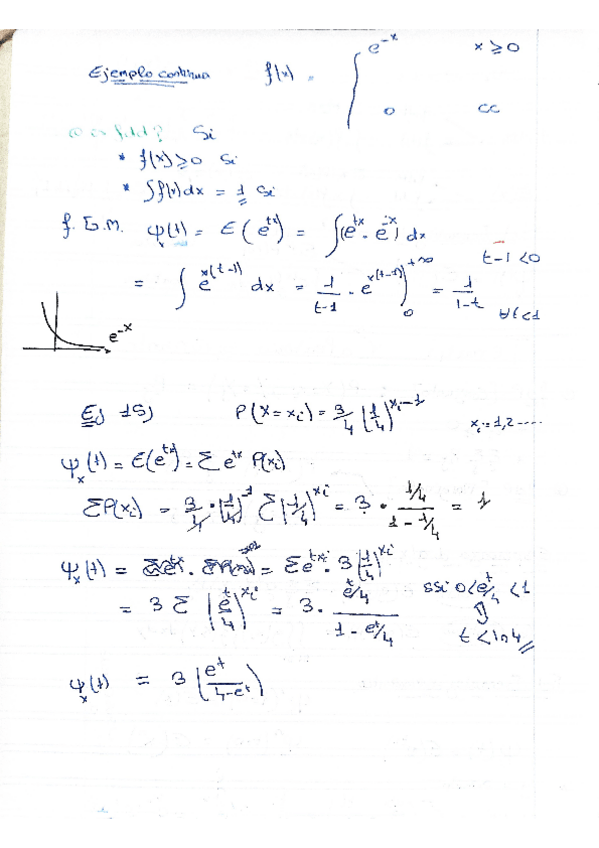 Ejemplo continuo f(x) = { e^{-x} x ≥ 0
0 cc
Si
* f(x) ≥ 0 Si
* ∫f(x)dx = 1 Si
f. G.M. φ_x(t) = E(e^{tx}) = ∫(e^{tx} · e^{-x}) dx
t-1 < 0
= ∫ e^{x(t-1)} dx = 1/(t-1) · e^{x(t-1)} ]_0^{+∞} = 1/(1-t) ∀t<1
e^{-x}
Ej 15) P(X = x_i) = 3/4 (1/4)^{x_i-1} x_i = 1,2 ----
ψ_x(t) = E(e^{tx}) = Σ e^{tx} P(x_i)
ΣP(x_i) = 3/4 · (1/4)^{-1} Σ(1/4)^{x_i} = 3 · (1/4)/(1 - 1/4) = 1
ψ_x(t) = = Σe^{tx_i} · 3(1/4)^{x_i} ssi 0<e^t/4<1
= 3 Σ (e^t/4)^{x_i} = 3 · (e^t/4)/(1 - e^t/4) ⇓
t < ln 4
ψ_x(t) = 3 (e^t/(4-e^t))